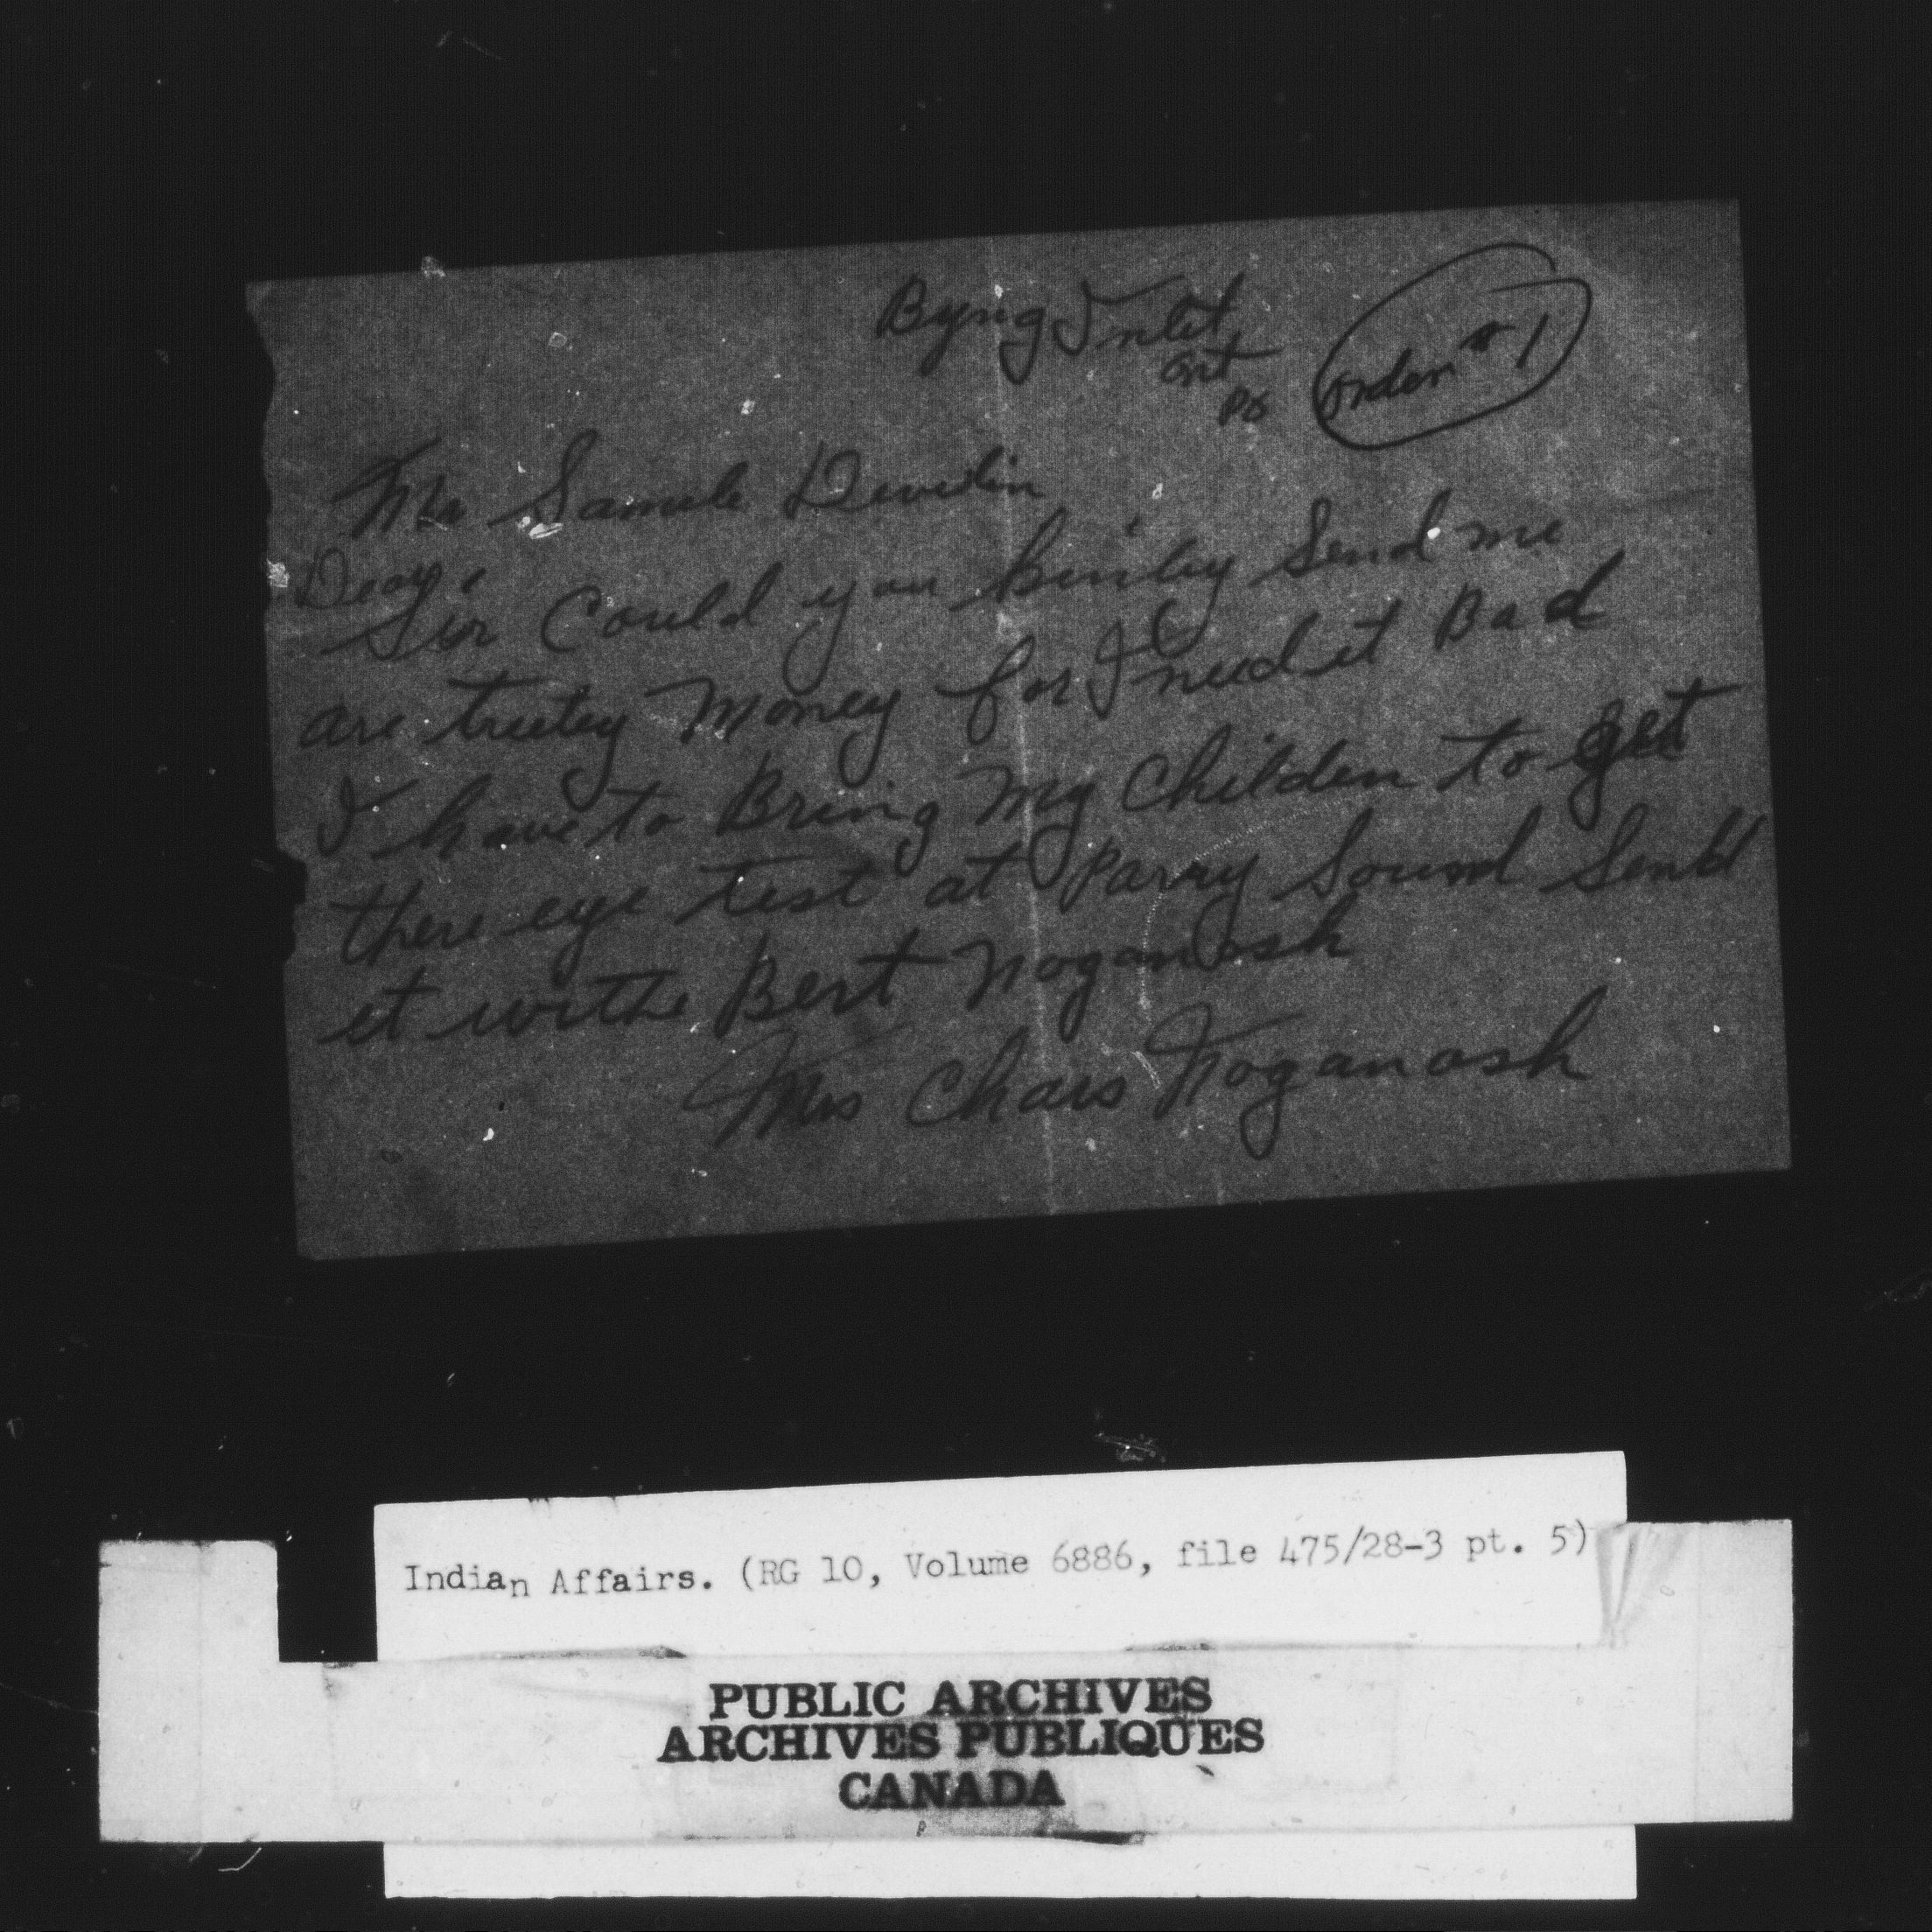 Byng Inlet
Ont
PO
Order #1
Mr Samule Devilin
Dear,
Sir Could you kinley Send me
are treetey Money for I need it Bad
I have to Bring My Childen to get
there eye test at Parry Sound Send
it withe Bert Noganosh
Mrs Chars Noganosh
Indian Affairs. (RG 10, Volume 6886, file 475/28-3 pt. 5)
PUBLIC ARCHIVES
ARCHIVES PUBLIQUES
CANADA